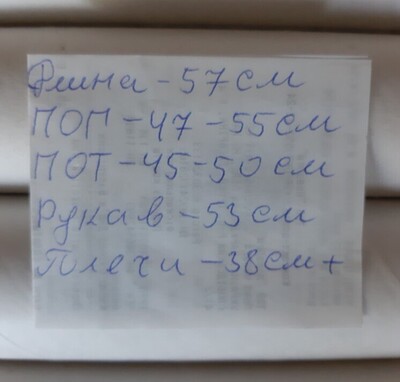 Длина - 57 см
ПОГ - 47 - 55 см
ПОТ - 45 - 50 см
Рукав - 53 см
Плечи - 38 см +